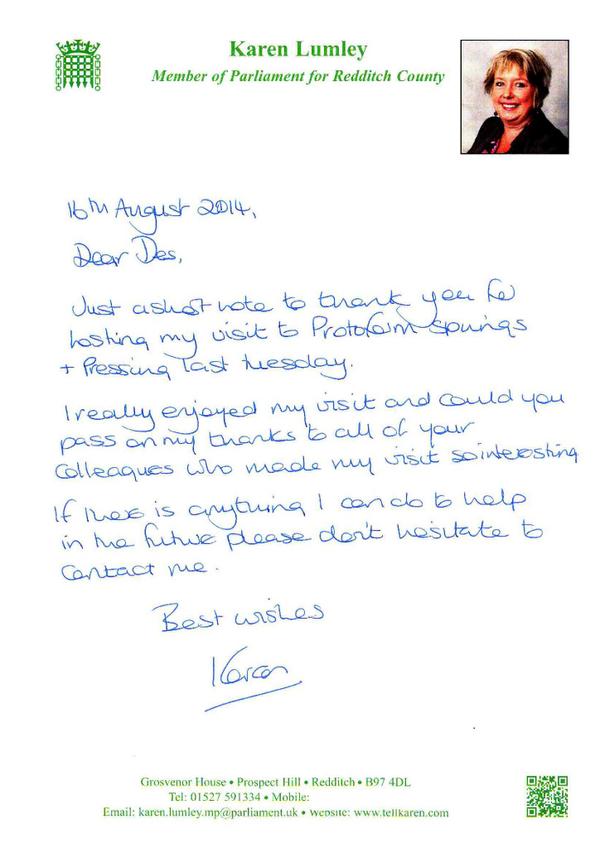 Karen Lumley
Member of Parliament for Redditch County
16th August 2014,
Dear Des,
Just a short note to thank you for
hosting my visit to Protoform springs
+ Pressing last Tuesday.
I really enjoyed my visit and could you
pass on my thanks to all of your
colleagues who made my visit so interesting
If there is anything I can do to help
in the future please don't hesitate to
contact me.
Best wishes
Karen
Grosvenor House • Prospect Hill • Redditch • B97 4DL
Tel: 01527 591334 • Mobile:
Email: karen.lumley.mp@parliament.uk • Website: www.tellkaren.com